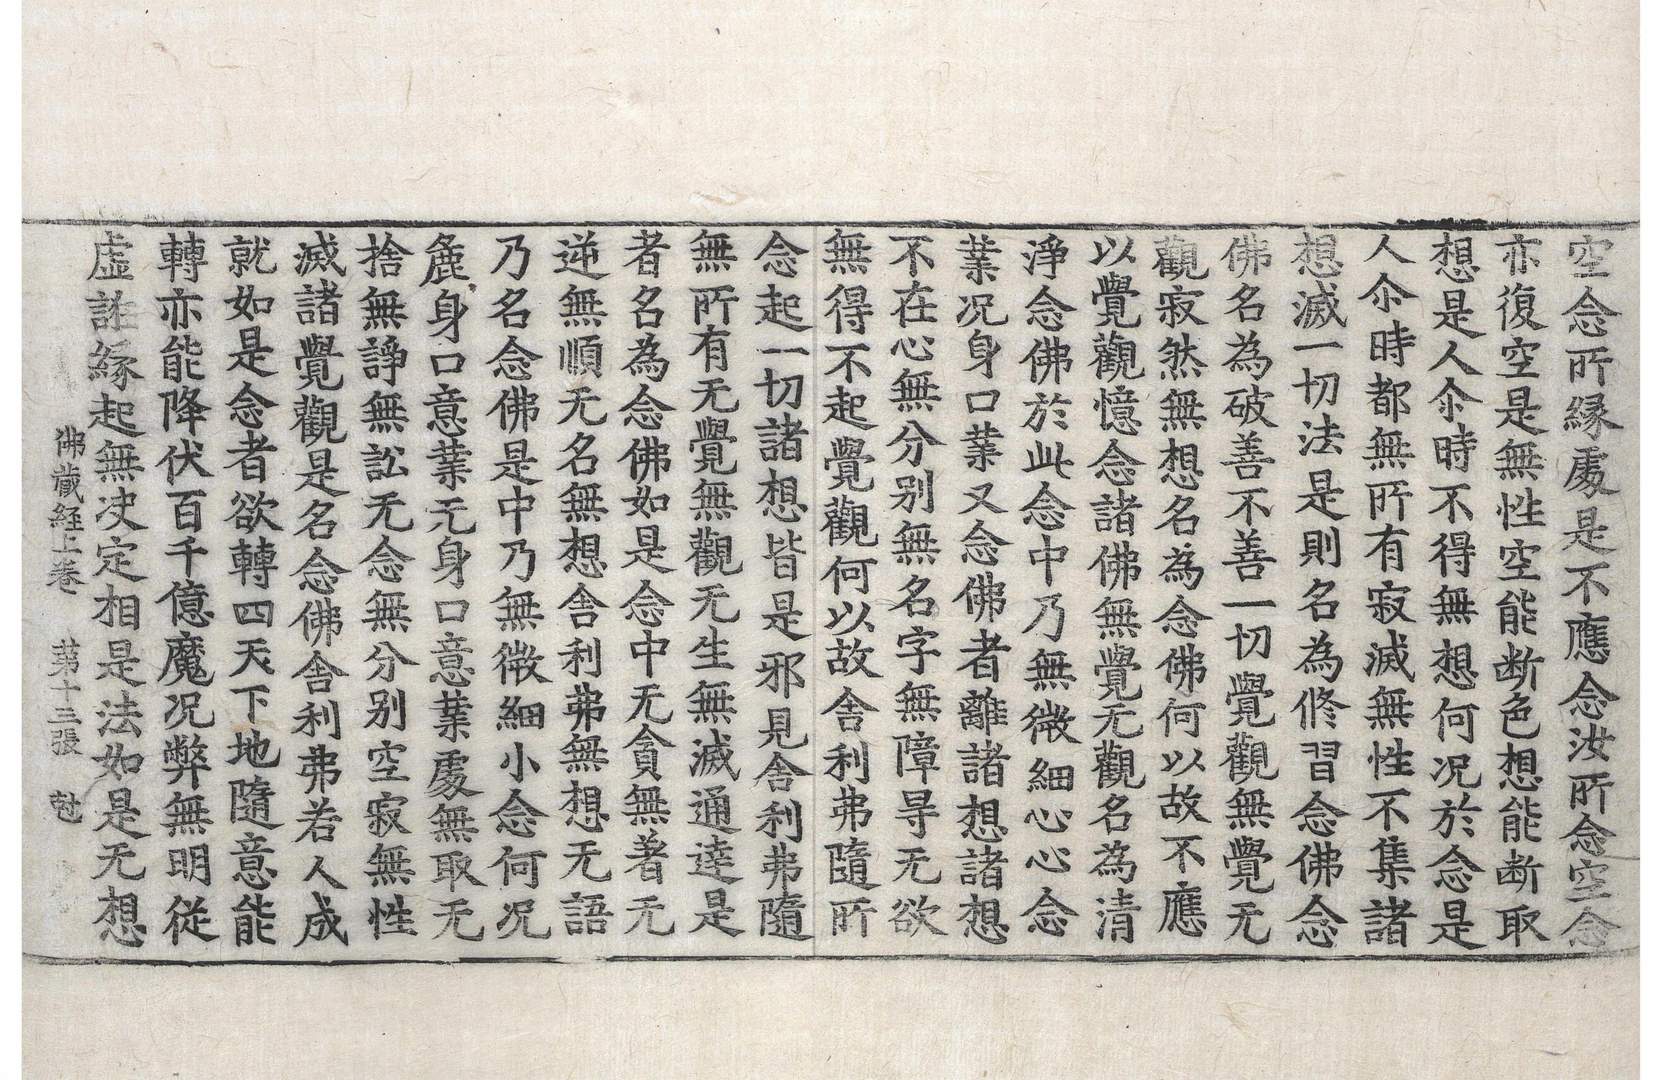 空念所縁處是不應念汝所念空念
亦復空是無性空能断色想能断取
想是人尒時不得無想何况於念是
人尒時都無所有寂滅無性不集諸
想滅一切法是則名為修習念佛念
佛名為破善不善一切覺觀無覺无
觀寂然無想名為念佛何以故不應
以覺觀憶念諸佛無覺无觀名為清
淨念佛於此念中乃無微細心心念
業况身口業又念佛者離諸想諸想
不在心無分别無名字無障㝵无欲
無得不起覺觀何以故舎利弗隨所
念起一切諸想皆是邪見舎利弗隨
無所有无覺無觀无生無滅通達是
者名為念佛如是念中无貪無著无
逆無順无名無想舎利弗無想无語
乃名念佛是中乃無微細小念何况
麁身口意業无身口意業處無取无
捨無諍無訟无念無分别空寂無性
滅諸覺觀是名念佛舎利弗若人成
就如是念者欲轉四天下地隨意能
轉亦能降伏百千億魔况弊無明従
虚誑縁起無决定相是法如是无想
佛藏経上卷　第十三張